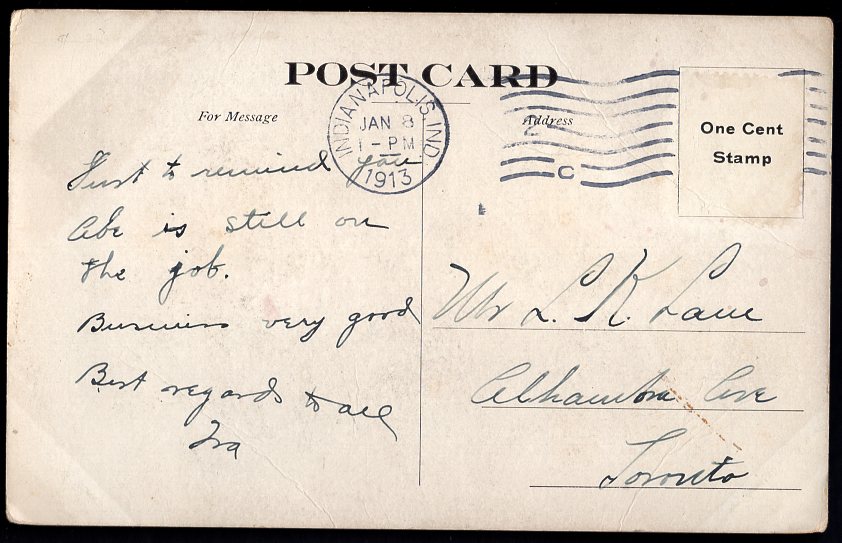 POST CARD
For Message
Address
INDIANAPOLIS, IND.
JAN 8
1 - PM
1913
C
One Cent
Stamp
Just to remind you
Abe is still on
the job.
Business very good
Best regards to all
Ira
Mr L. K. Lane
Alhambra Ave
Toronto